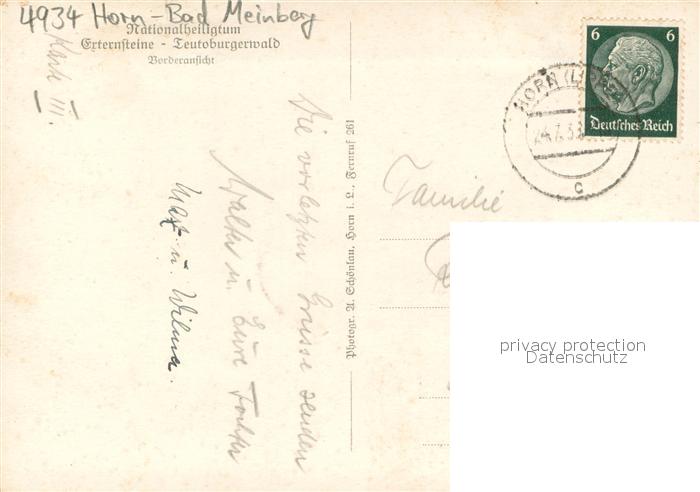 4934 Horn-Bad Meinberg
Nationalheiligtum
Externsteine - Teutoburgerwald
Vorderansicht
Karte III.
Die vorletzten Grüsse senden
Walter u. Eure Tochter
Max u. Wilma.
Photogr. A. Schönlau, Horn i. L., Fernruf 261
6 6
Deutsches Reich
HORN (LIPPE)
24.7.38
c
Familie
privacy protection
Datenschutz